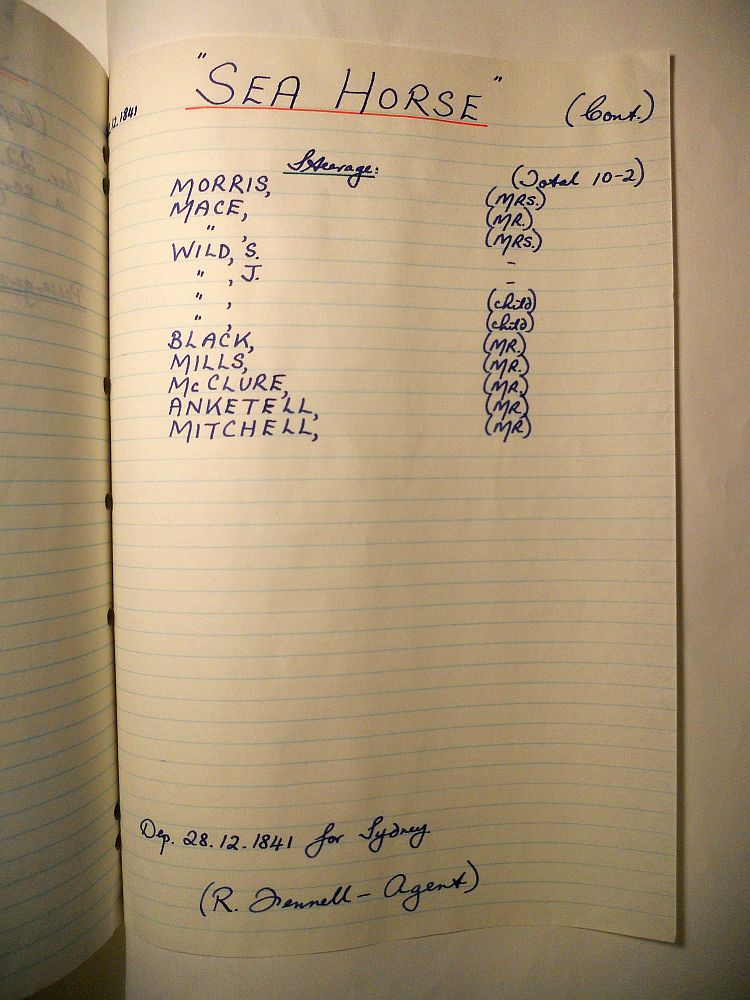 "SEA HORSE" (Cont.)
.12.1841
Steerage: (Total 10-2)
MORRIS, (MRS.)
MACE, (MR.)
" , (MRS.)
WILD, S. -
" , J. -
" , (child)
" , (child)
BLACK, (MR.)
MILLS, (MR.)
McCLURE, (MR.)
ANKETELL, (MR)
MITCHELL, (MR)
Dep. 28.12.1841 for Sydney.
(R. Fennell - Agent)